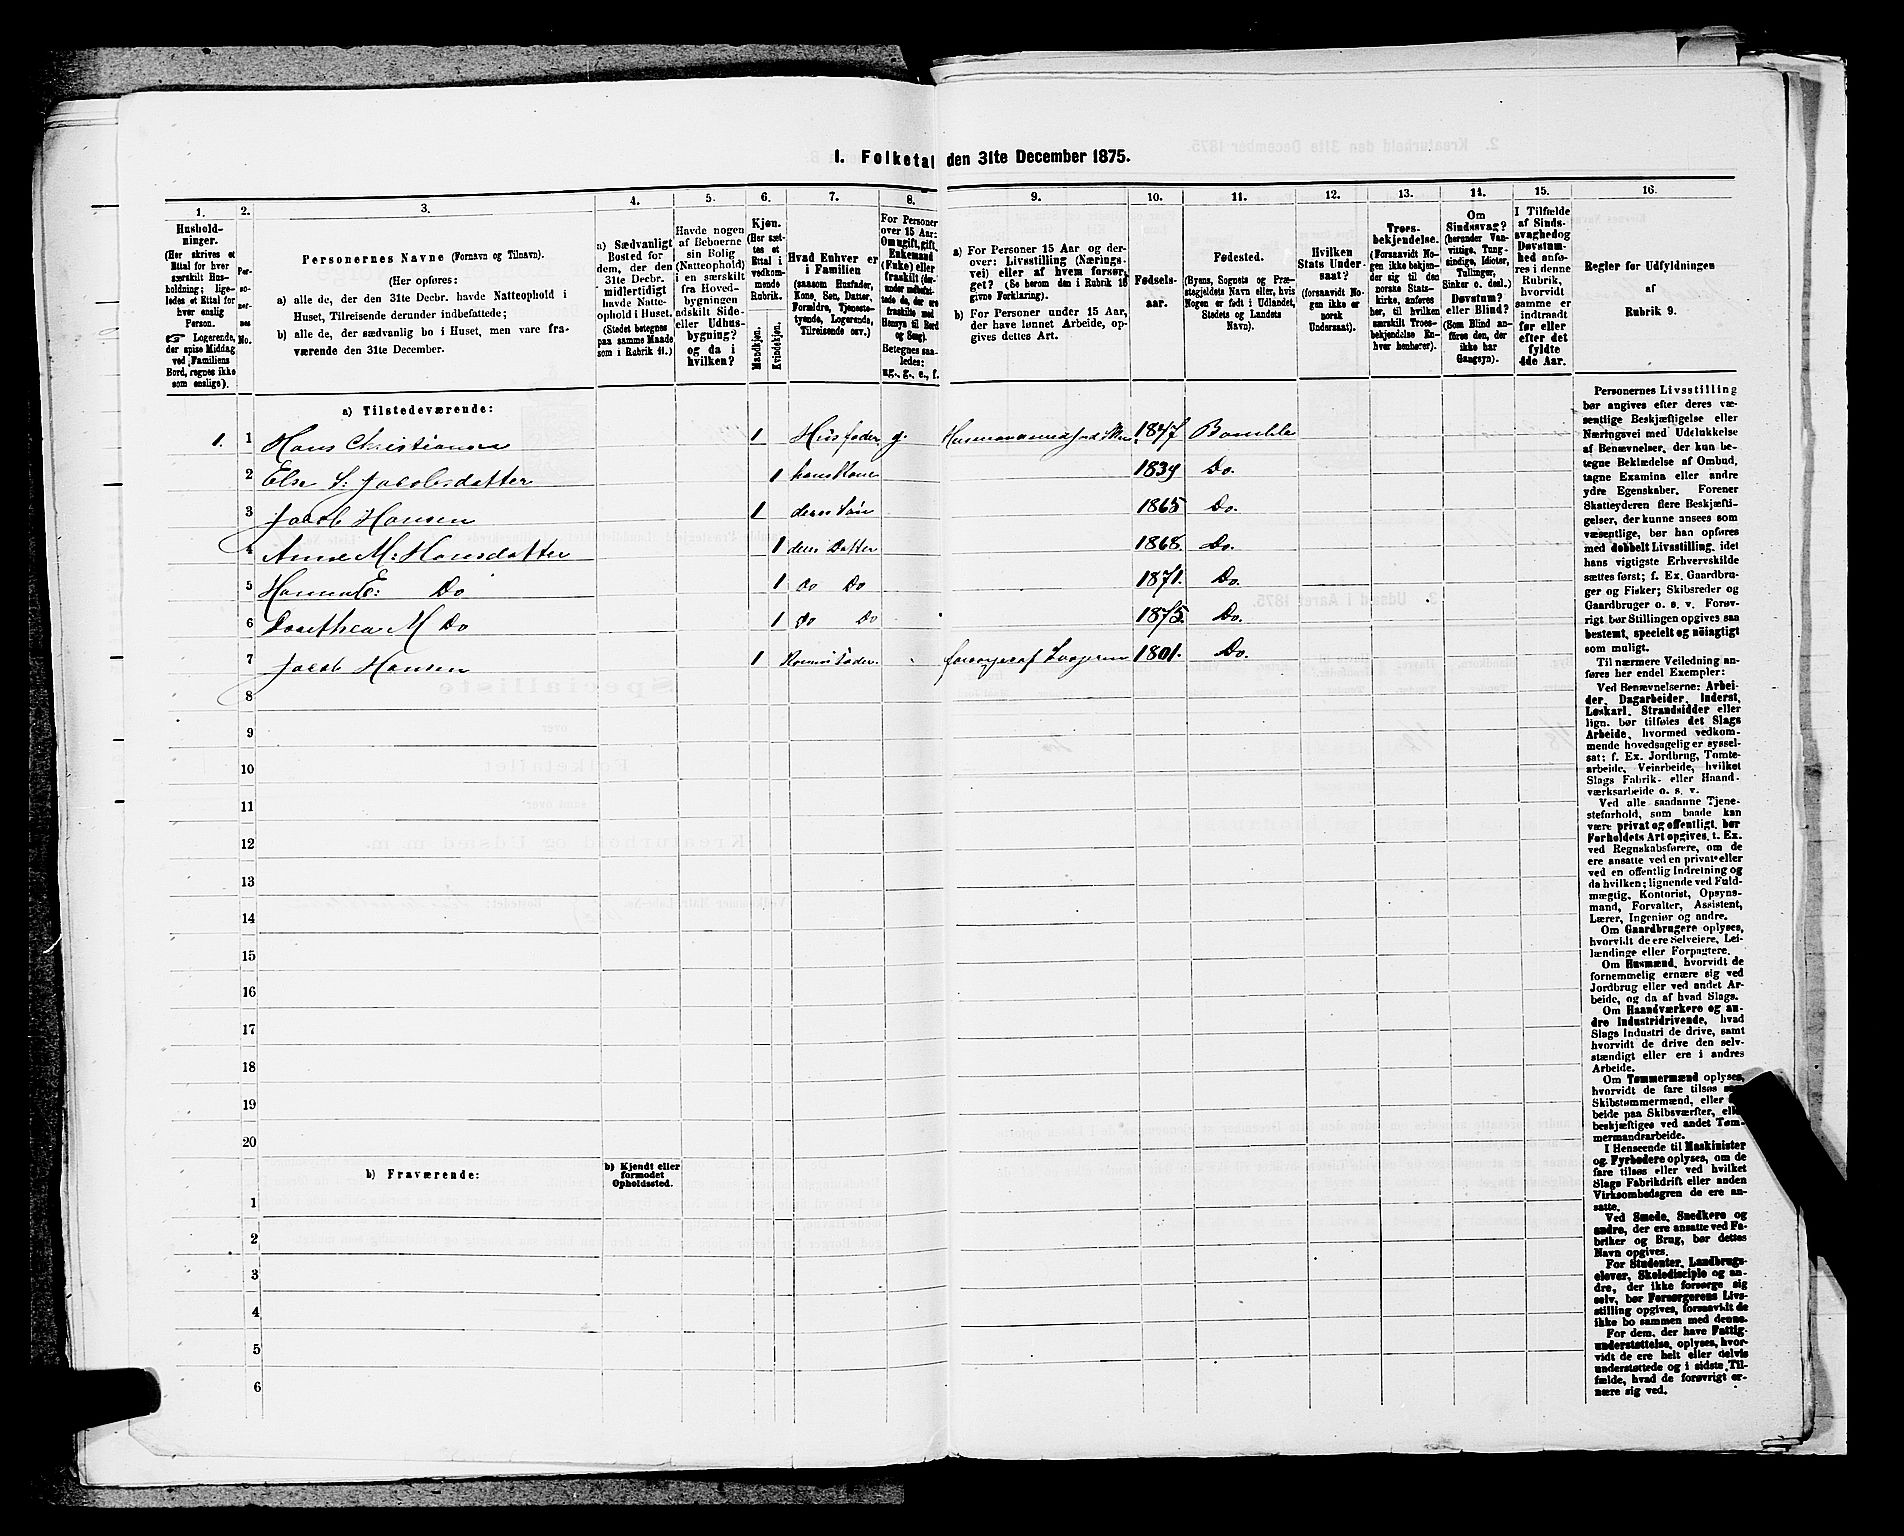 1. Folketal den 31te December 1875.
1.
Hushold-
ninger.
(Her skrives et
Ettal for hver
særskilt Hus-
holdning; lige-
ledes et Ettal for
hver enslig
Person.
☞ Logerende,
der spise Middag
ved Familiens
Bord, regnes ikke
som enslige).
2.
Per-
so-
ner-
nes
No.
3.
Personernes Navne (Fornavn og Tilnavn).
(Her opføres:
a) alle de, der den 31te Decbr. havde Natteophold i
Huset, Tilreisende derunder indbefattede;
b) alle de, der sædvanlig bo i Huset, men vare fra-
værende den 31te December.
4.
a) Sædvanligt
Bosted for
dem, der den
31te Decbr.
midlertidigt
havde Natte-
ophold i Huset.
(Stedet betegnes
paa samme Maade
som i Rubrik 11.)
5.
Havde nogen
af Beboerne
sin Bolig
(Natteophold)
i en særskilt
fra Hoved-
bygningen
adskilt Side-
eller Udhus-
bygning?
og da i
hvilken?
6.
Kjøn.
(Her sæt-
tes et
Ettal i
vedkom-
mende
Rubrik.
Mandkjøn.
Kvindekjøn.
7.
Hvad Enhver er
i Familien
(saasom Husfader,
Kone, Søn, Datter,
Forældre, Tjeneste-
tyende, Logerende,
Tilreisende osv.)
8.
For Personer
over 15 Aar:
Om ugift, gift,
Enkemand
(Enke) eller
fraskilt
Betegnes saa-
ledes:
ug., g., e., f.
9.
a) For Personer 15 Aar og der-
over: Livsstilling (Nærings-
vei) eller af hvem forsør-
get? (Se herom den i Rubrik 16
givne Forklaring).
b) For Personer under 15 Aar,
der have lønnet Arbeide, op-
gives dettes Art.
10.
Fødsels-
aar.
11.
Fødested.
(Byens, Sognets og Præ-
stegjeldets Navn eller, hvis
Nogen er født i Udlandet,
Stedets og Landets
Navn).
12.
Hvilken
Stats Under-
saat?
(forsaavidt No-
gen ikke er
norsk
Undersaat).
13.
Troes-
bekjendelse.
(Forsaavidt No-
gen ikke bekjen-
der sig til den
norske Stats-
kirke, anføres
her, til hvilken
særskilt Troes-
bekjendelse En-
hver henhører).
14.
Om
Sindssvag?
(herunder Van-
vittige, Tung-
sindige, Idioter,
Tullinger,
Sinker o. desl.)
Døvstum?
eller Blind?
(Som Blind an-
føres den, der
ikke har
Gangsyn).
15.
I Tilfælde
af Sinds-
svaghed og
Døvstum-
hed anfø-
res i denne
Rubrik,
hvorvidt
samme er
indtraadt
før eller
efter det
fyldte
4de Aar.
16.
Regler for Udfyldningen
af
Rubrik 9.
a) Tilstedeværende:
1. 1 Hans Christiansen 1 Husfader g. 1847 Bamble
2 Else S: Jacobsdatter 1 hans Kone 1839 Do.
3 Jacob Hansen 1 deres Søn 1865 Do.
4 Anne M: Hansdatter 1 deres Datter 1868. Do.
5 E: Do 1 Do Do 1871. Do.
6 Dorethea M Do 1 Do Do 1875. Do.
7 Jacob Hansen 1 Konens Fader 1801. Do.
8
9
10
11
12
13
14
15
16
17
18
19
20
b) Fraværende:
b) Kjendt eller
formodet
Opholdssted.
1
2
3
4
5
6
Personernes Livsstilling
bør angives efter deres væ-
sentlige Beskjæftigelse eller
Næringsvei med Udelukkelse
af Benævnelser, der kun be-
tegne Beklædelse af Ombud,
tagne Examina eller andre
ydre Egenskaber. Forener
Skatteyderen flere Beskjæfti-
gelser, der kunne ansees som
væsentlige, bør han opføres
med dobbelt Livsstilling, idet
hans vigtigste Erhvervskilde
sættes først; f. Ex. Gaardbru-
ger og Fisker; Skibsreder og
Gaardbruger o. s. v. Forøv-
rigt bør Stillingen opgives saa
bestemt, specielt og nøiagtigt
som muligt.
Til nærmere Veiledning an-
føres her endel Exempler:
Ved Benævnelserne: Arbei-
der, Dagarbeider, Inderst,
Løskarl, Strandsidder eller
lign. bør tilføies det Slags
Arbeide, hvormed vedkom-
mende hovedsagelig er syssel-
sat; f. Ex. Jordbrug, Tomte-
arbeide, Veiarbeide, hvilket
Slags Fabrik- eller Haand-
værksarbeide o. s. v.
Ved alle saadanne Tjene-
steforhold, som baade kan
være privat og offentligt, bør
Forholdets Art opgives, t. Ex.
ved Regnskabsførere, om de
ere ansatte ved en privat eller
ved en offentlig Indretning og
da hvilken; lignende ved Fuld-
mægtig, Kontorist, Opsyns-
mand, Forvalter, Assistent,
Lærer, Ingeniør og andre.
Om Gaardbrugere oplyses,
hvorvidt de ere Selveiere, Lei-
lændinge eller Forpagtere.
Om Husmænd, hvorvidt de
fornemmelig ernære sig ved
Jordbrug eller ved andet Ar-
beide, og da af hvad Slags.
Om Haandværkere og an-
dre Industridrivende, hvad
Slags Industri de drive, samt
hvorvidt de drive den selv-
stændigt eller ere i andres
Arbeide.
Om Tømmermænd oplyses,
hvorvidt de fare tilsøs
Skibstømmermænd, eller
beide paa Skibsværfter,
beskjæftiges ved andet Tøm-
mermandsarbeide.
I Henseende til Maskinister
og Fyrbødere oplyses, om de
fare tilsøs eller ved hvilket
Slags Fabrikdrift eller anden
Virksomhedsgren de ere an-
satte.
Ved Smede, Snedkere og
andre, der ere ansatte ved Fa-
briker og Brug, bør dettes
Navn opgives.
For Studenter, Landbrugs-
elever, Skoledisciple og an-
dre, der ikke forsørge sig
selv, bør Forsørgerens Livs-
stilling opgives, forsaavidt de
ikke bo sammen med denne.
For dem, der have Fattig-
understøttelse, oplyses, hvor-
vidt de ere helt eller delvis
understøttede og i sidste Til-
fælde, hvad de forøvrigt er-
nære sig ved.